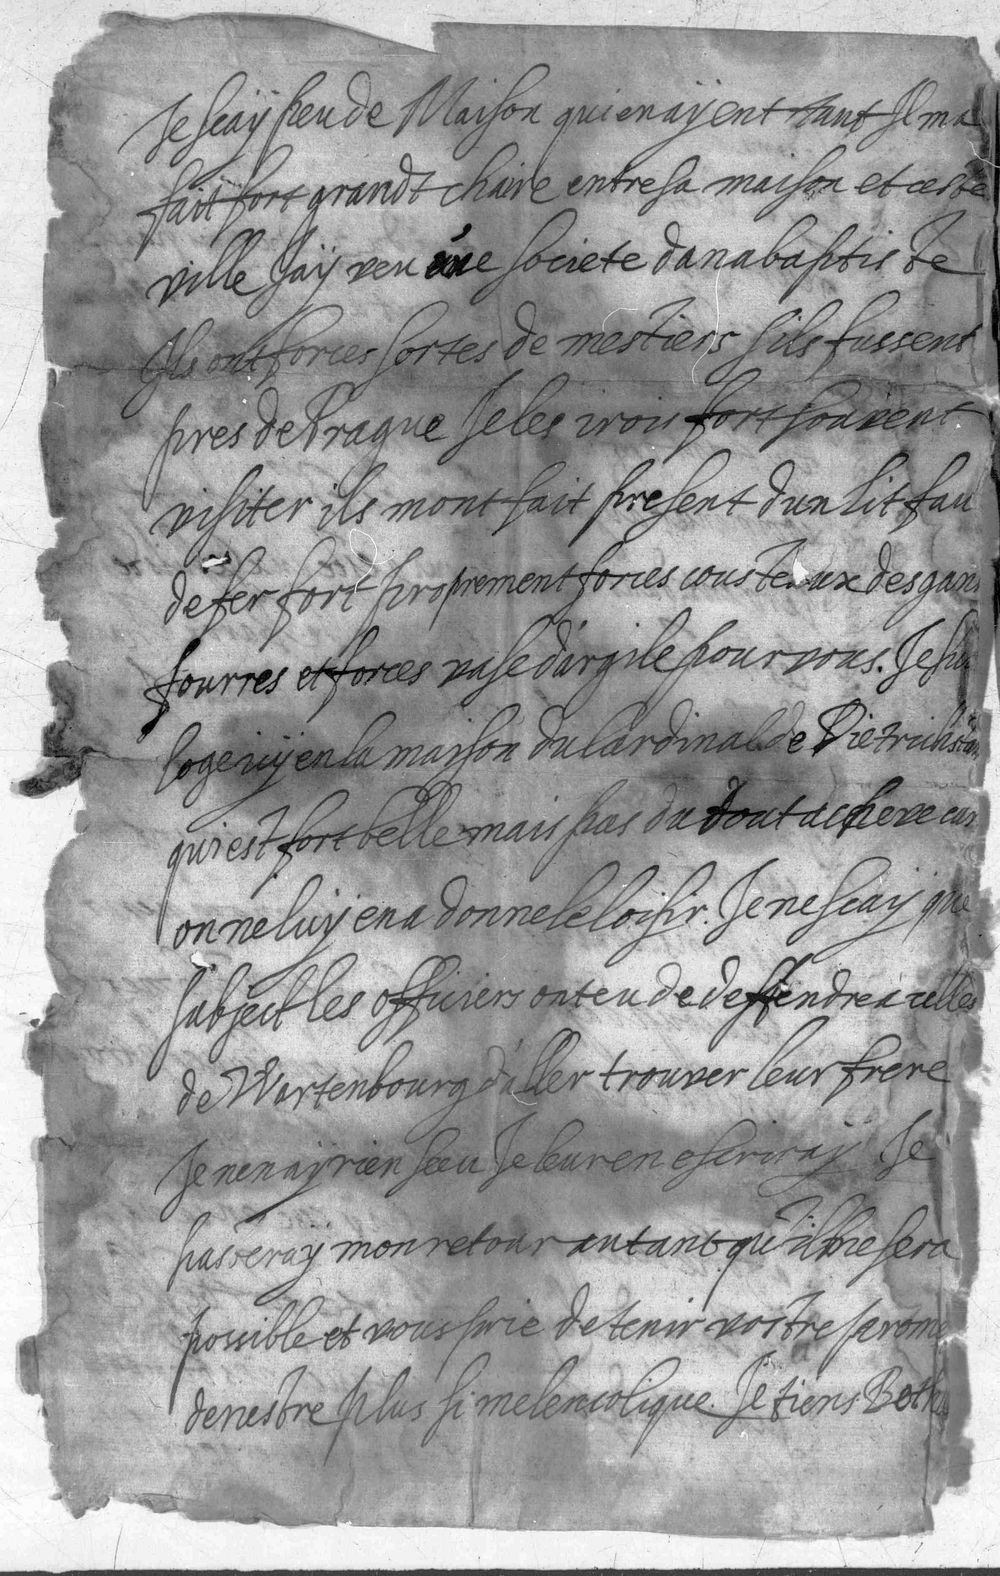 Je scaÿ peu de Maison qui en aÿent tant Il ma
fait fort grandt chaire entre sa maison et ceste
ville Jaÿ veu une societe danabaptiste
Ils ont forces sortes de mestiers sils fussent
pres de Prague Je les irois fort souvent
visiter ils mont fait present dun lit fau
de fer fort proprement forces cousteaux des gans
fourres et forces vase d'argile pour vous. Je suis
loge icÿ en la maison du Cardinal de Dietrichstain
qui est fort belle mais pas du tout acheve car
on ne luÿ en a donne le loisir. Je ne scaÿ que
subject les officiers ont eu de deffendre a celles
de Wartenbourg d'aller trouver leur frere
Je nen aÿ rien sceu Je leur en escriraÿ Je
hasteraÿ mon retour autant qu'il me sera
possible et vous prie de tenir vostre prome
de nestre plus si melencolique. Je tiens Beth